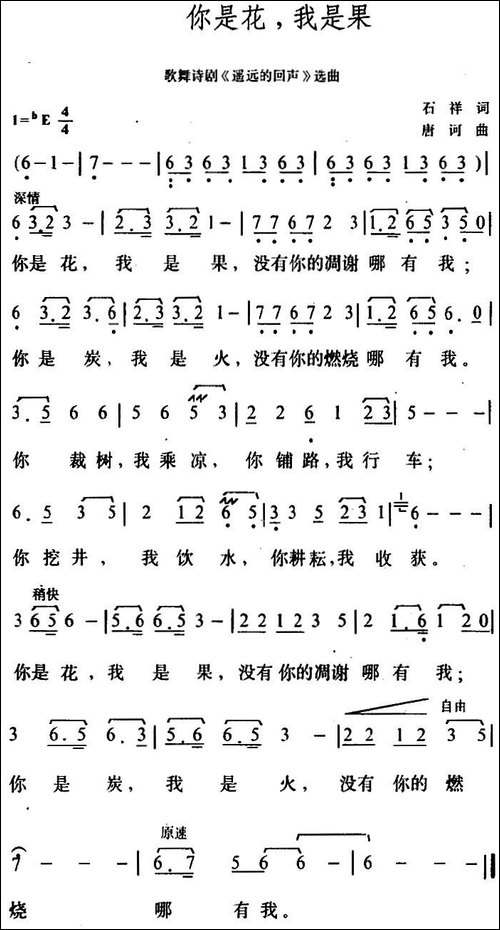 你是花，我是果
歌舞诗剧《遥远的回声》选曲
石祥 词
1=ᵇE 4/4
唐诃 曲
(6 - 1 - | 7 - - - | 6 3 6 3 1 3 6 3 | 6 3 6 3 1 3 6 3 ) |
深情
6 3.2 3 - | 2.3 3.2 1 - | 7 7 6 7 2 3 | 1.2 6 5 3 5 0 |
你是花，我是果，没有你的凋谢哪有我；
6 3.2 3.6 | 2.3 3.2 1 - | 7 7 6 7 2 3 | 1.2 6 5 6.0 |
你是炭，我是火，没有你的燃烧哪有我。
3.5 6 6 | 5 6 5 3 | 2 2 6 1 2 3 | 5 - - - |
你 裁树，我乘凉，你铺路，我行车；
6.5 3 5 | 2 1 2 6 5 | 3 3 5 2 3 1 | 1 6 - - - |
你挖井，我饮水，你耕耘，我收获。
稍快
3 6 5 6 - | 5.6 6.5 3 - | 2 2 1 2 3 5 | 2 1.6 1 2 0 |
你是花，我是果，没有你的凋谢哪有我；
自由
3 6.5 6.3 | 5.6 6.5 3 - | 2 2 1 2 3 5 |
你是炭，我是火，没有你的燃
原速
7 - - - | 6.7 5 6 6 - | 6 - - - ‖
烧 哪 有我。